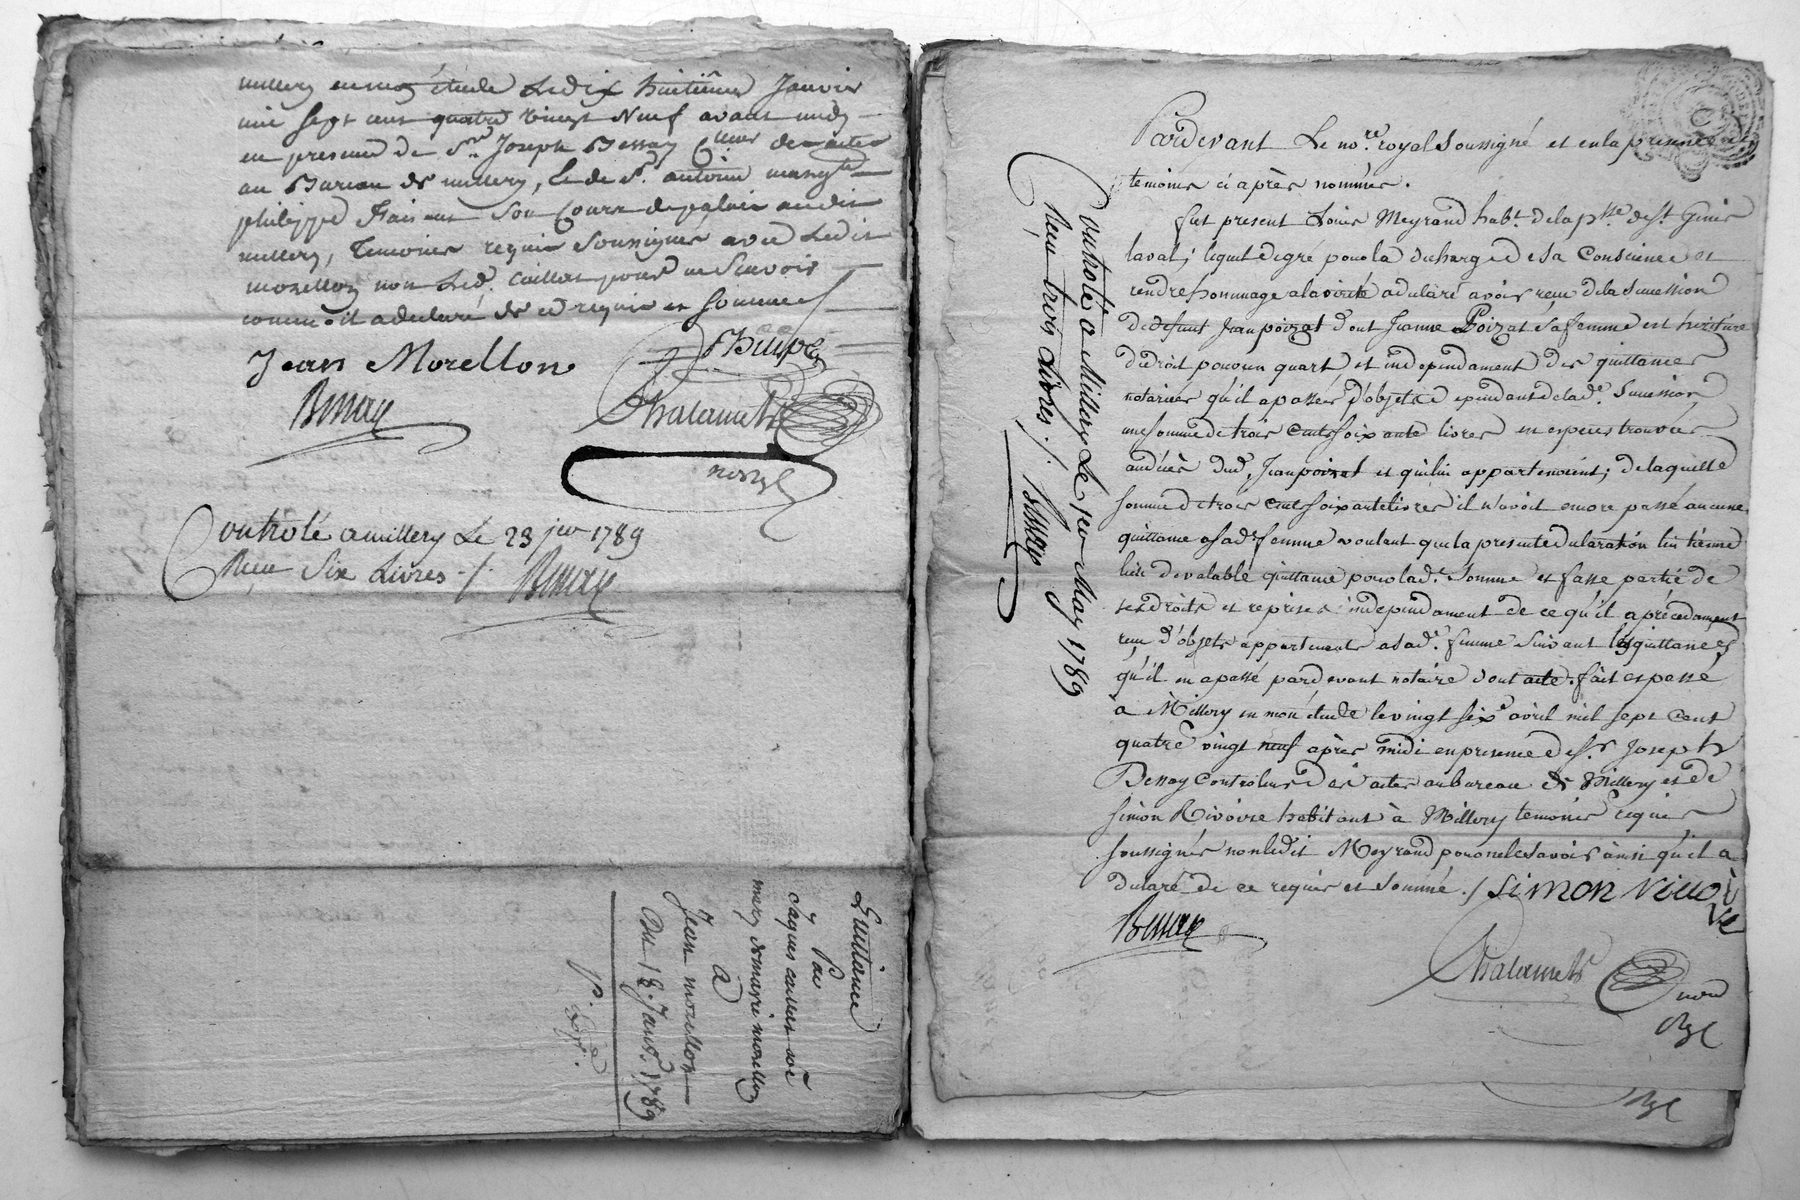 millery en mon étude Le dix huitième Janvier
mil sept cent quatre vingt Neuf avant midy
en presence de Sr. Joseph Bessay des actes
au Bureau de millery, et de Sr. antoine
philippe faisant Son Cours de palais audit
millery, Temoins requis Soussignés avec Ledit
morellon non Led. caillot pour ne Scavoir
comme il a declaré de ce requis et Sommé
Jean Morellon
Phlipe
Bessay
Chalamel
nore
Controlé a millery Le 23 jer 1789
Reçu Six Livres ./. Bessay
Quittance
Par
Jaques caillot
mary de marie morellon
A
Jean morellon
Du 18. Janv. 1789
Controlé a Millery Le 1er May 1789
Reçu trois Livres ./. Bessay
Pardevant Le nore. royal Soussigné et en la presence
temoins ci après nommés.
fut present Louis Meyrand habt. de la psse de St. Genis
laval, lequel de gré pour la decharge de sa Conscience et
rendre hommage a la vérité a declaré avoir reçu de la Succession
de defunt Jean poizat dont Jeanne Poizat Sa femme est heritiere
de droit pour un quart et independament des quittances
notariées qu'il a passées d'objets dependants de lade. Succession,
une somme de trois Cents soixante livres en especes trouvées
au decès dud. Jean poizat et qui lui appartenoient; de laquelle
somme de trois Cents soixante livres il n'avoit encore passé aucune
quittance a sade. femme voulant que la presente declaration lui tienne
lieu de valable quittance pour lade. Somme et fasse partie de
ses droits et reprises independament de ce qu'il a précedament
reçu d'objets appartenants a sade. femme Suivant les quittances
qu'il en a passé pardevant notaire dont acte. fait et passé
à Millery en mon étude le vingt six avril mil sept Cent
quatre vingt neuf après midi en presence de Sr. Joseph
Bessay Controleur des actes au bureau de Millery et de
simon Rivoire habitant à Millery temoins requis
soussignés non ledit Meyrand pour ne le savoir ainsi qu'il a
declaré de ce requis et sommé ./ Simon rivoire
Bessay
Chalamel
nore